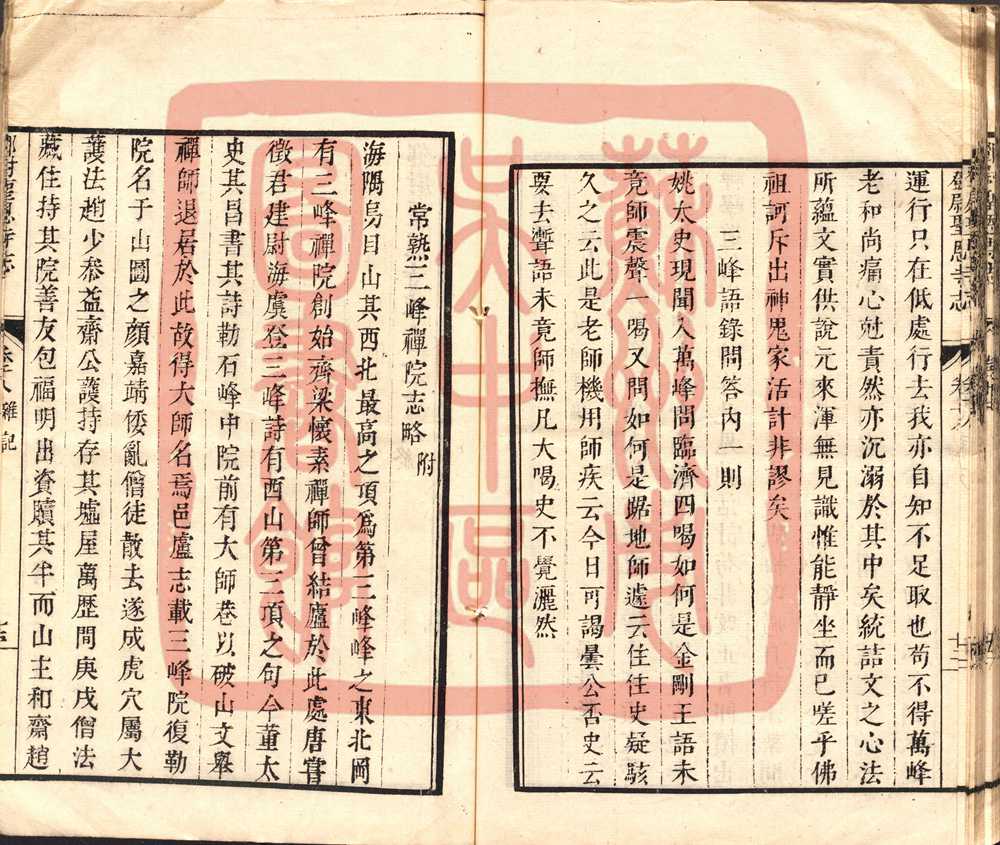 鄧尉聖恩寺志
卷十八
十二
運行只在低處行去我亦自知不足取也苟不得萬峰
老和尚痛心尅責然亦沉溺於其中矣統詰文之心法
所蘊文實供說元來渾無見識惟能靜坐而已嗟乎佛
祖訶斥出神鬼家活計非謬矣
三峰語錄問答內一則
姚太史現聞入萬峰問臨濟四喝如何是金剛王語未
竟師震聲一喝又問如何是踞地師遽云住住史疑駭
久之云此是老師機用師疾云今日可謁曇公否史云
要去聻語未竟師撫几大喝史不覺灑然
常熟三峰禪院志略 附
海隅烏目山其西北最高之頂爲第三峰峰之東北岡
有三峰禪院創始齊梁懷素禪師曾結廬於此處唐嘗
徵君建尉海虞登三峰詩有西山第三項之句今董太
史其昌書其詩勒石峰中院前有大師巷以破山文舉
禪師退居於此故得大師名焉邑盧志載三峰院復勒
院名于山圖之顏嘉靖倭亂僧徒散去遂成虎穴屬大
護法趙少叅益齋公護持存其墟屋萬歷間庚戌僧法
藏住持其院善友包福明出資贖其半而山主和齋趙
鄧尉聖恩寺志
卷十八 雜記
十三
蘇州市
吳中區
圖書館